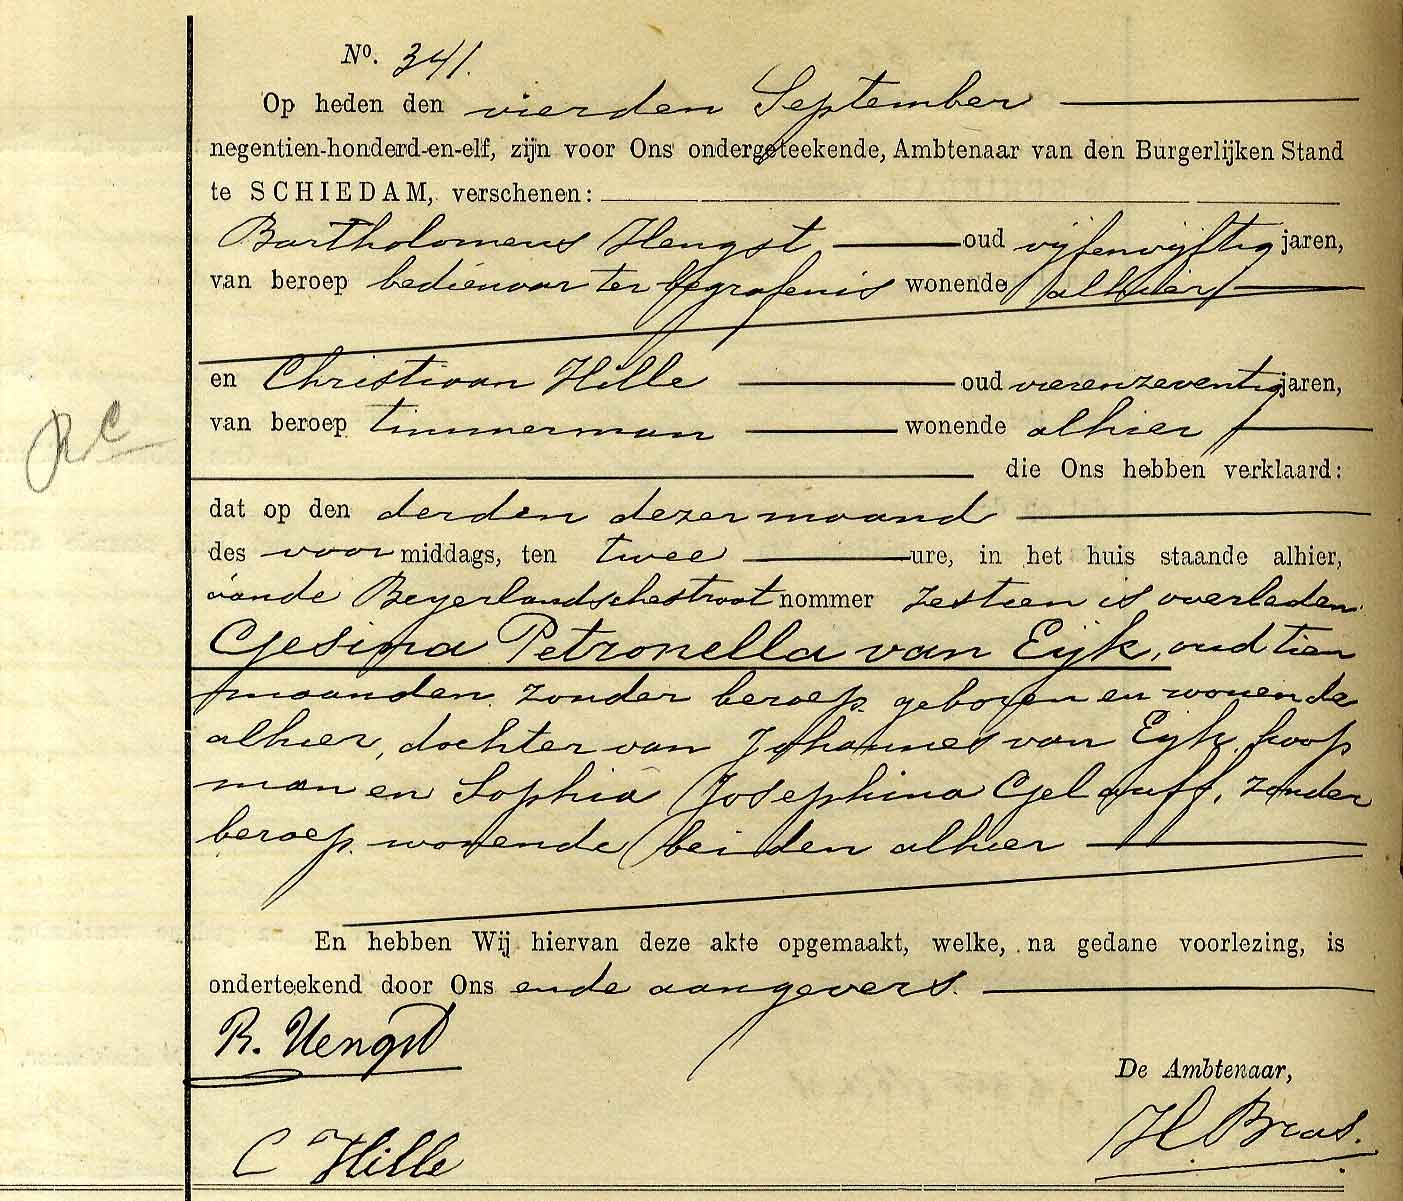 No. 341.
Op heden den vierden September
negentien-honderd-en-elf, zijn voor Ons ondergeteekende, Ambtenaar van den Burgerlijken Stand
te SCHIEDAM, verschenen:
Bartholomeus Hengst oud vijfenvijftig jaren,
van beroep bedienaar ter begrafenis wonende alhier
en Christiaan Hille oud vierenzeventig jaren,
van beroep timmerman wonende alhier
RC
die Ons hebben verklaard:
dat op den derden dezer maand
des voormiddags, ten twee ure, in het huis staande alhier,
aande Beyerlandschestraat nommer zestien is overleden:
Gesina Petronella van Eijk, oud tien
maanden zonder beroep geboren en wonende
alhier, dochter van Johannes van Eijk, koop
man en Sophia Josephina Gelauff, zonder
beroep wonende beiden alhier
En hebben Wij hiervan deze akte opgemaakt, welke, na gedane voorlezing, is
onderteekend door Ons ende aangevers.
B. Hengst
De Ambtenaar,
H Bras.
C Hille